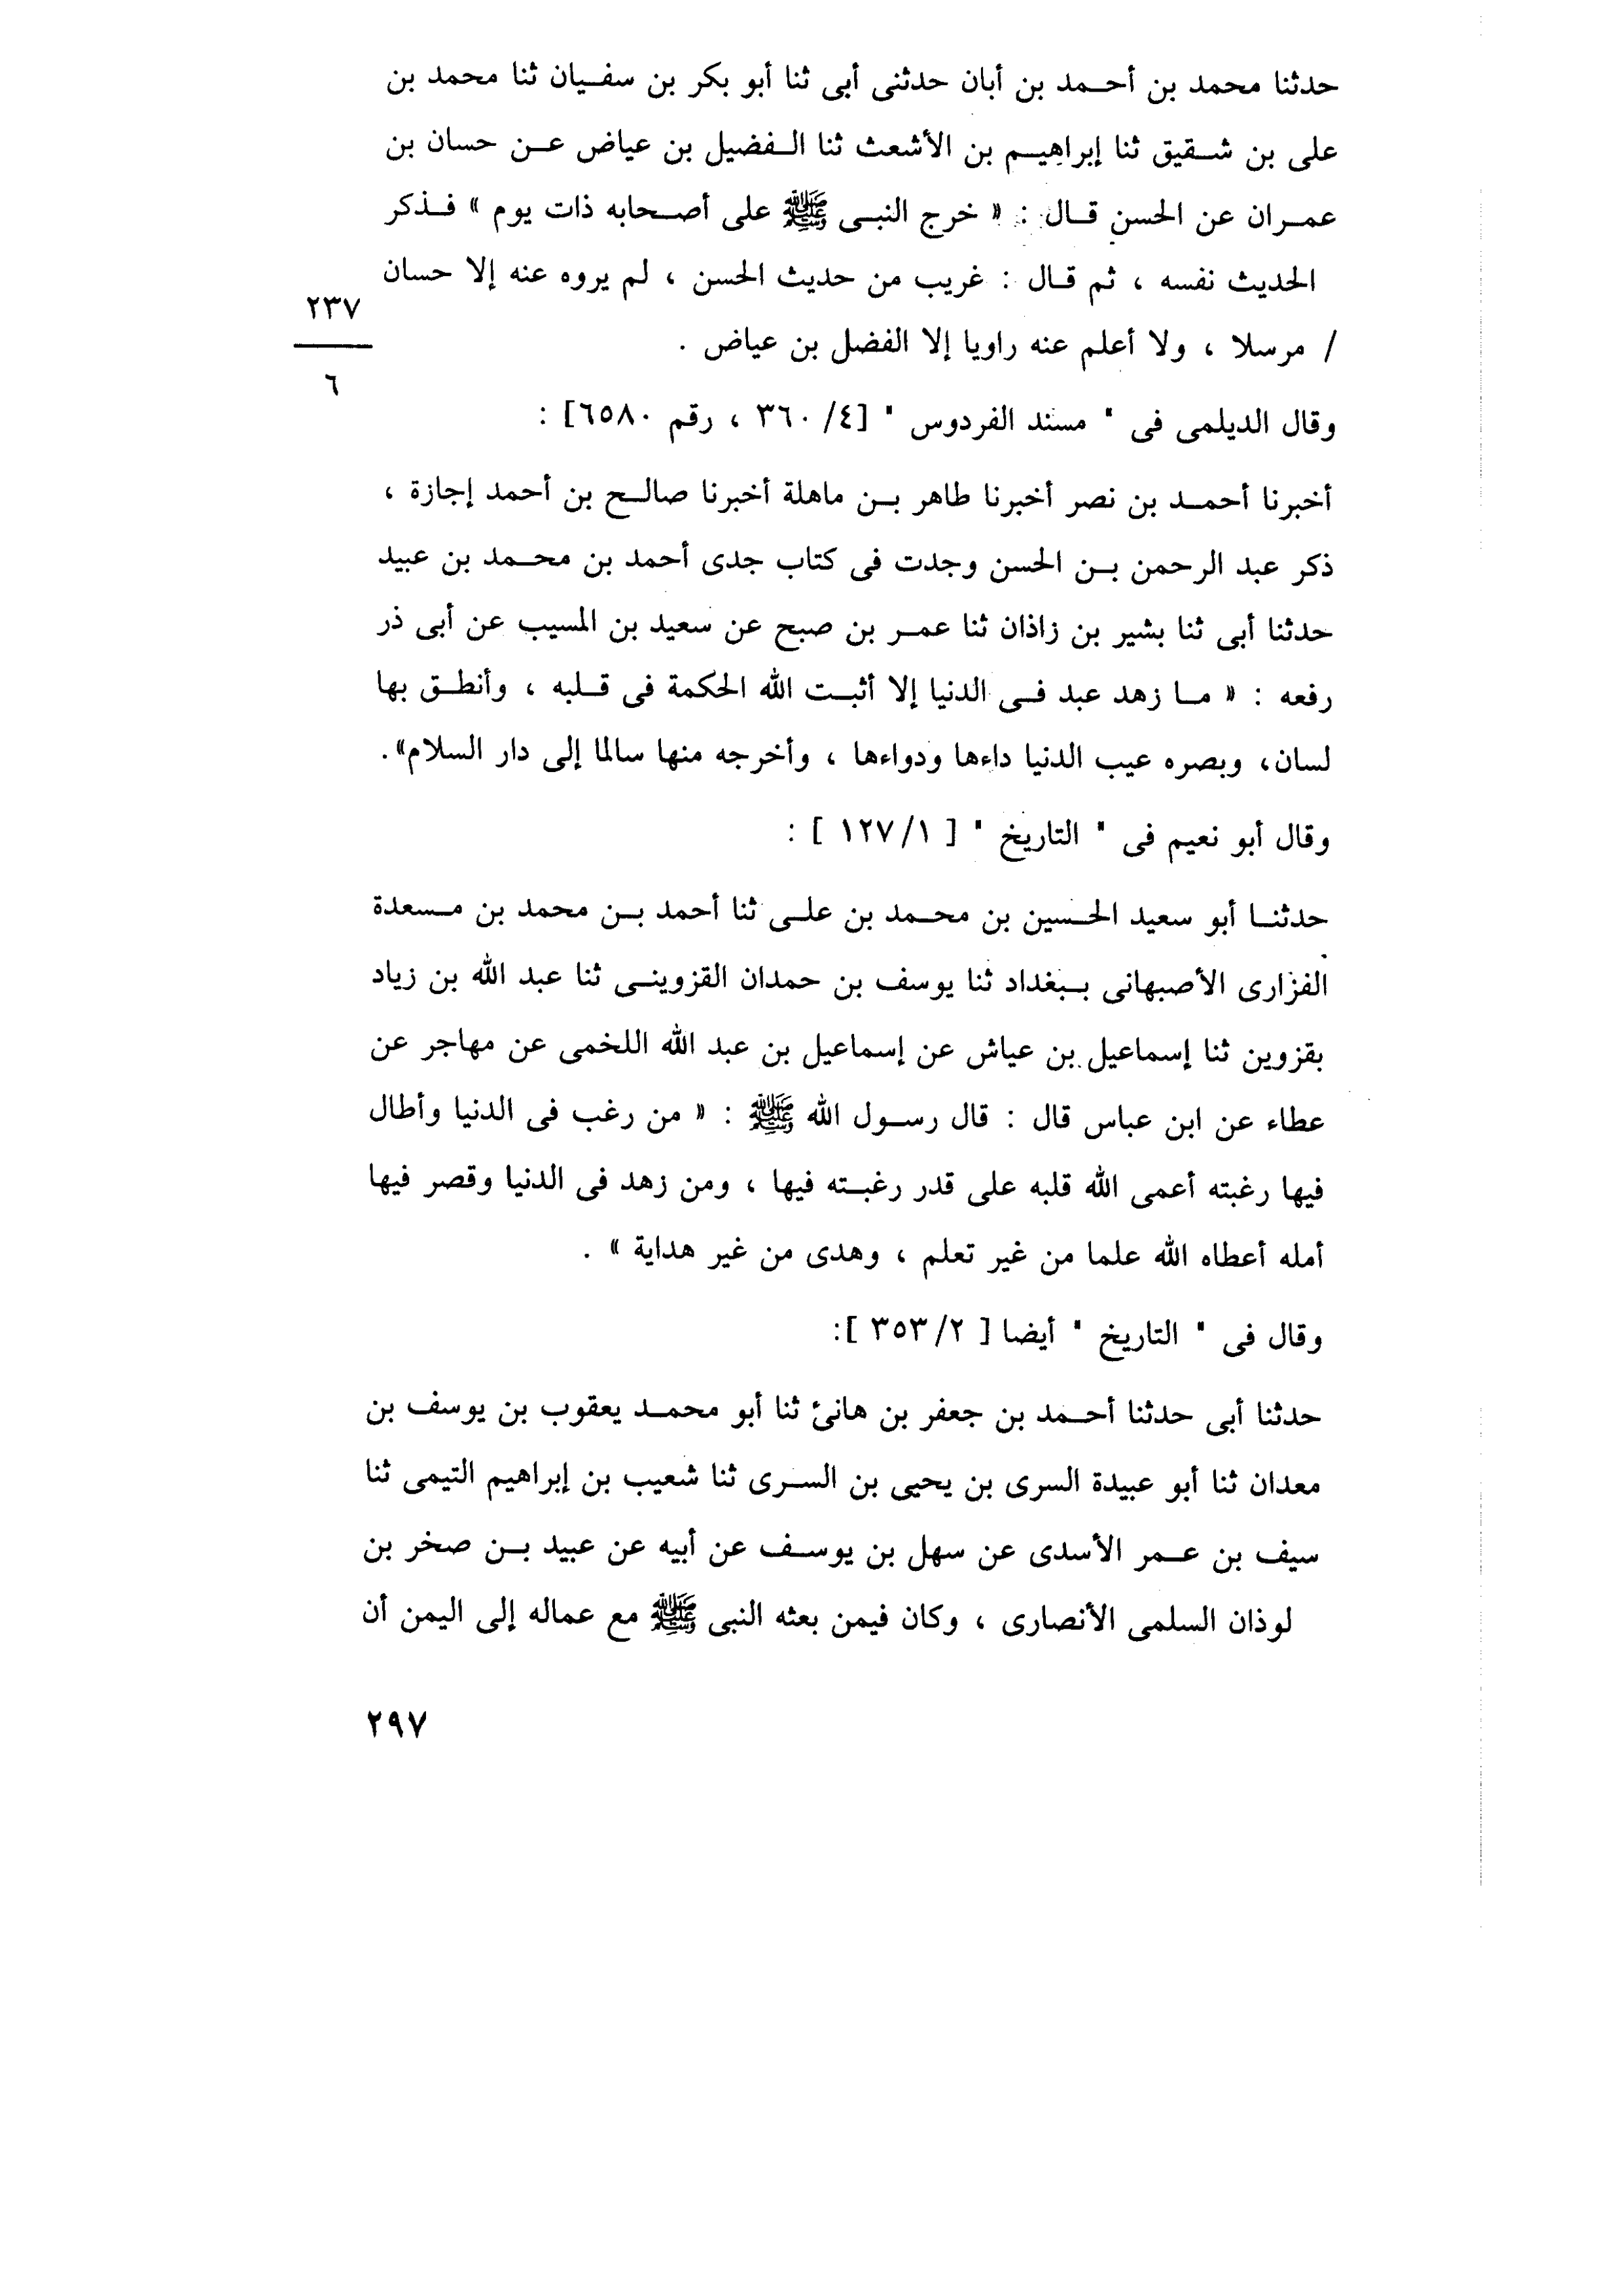 حدثنا محمد بن أحمد بن أبان حدثنى أبى ثنا أبو بكر بن سفيان ثنا محمد بن
على بن شقيق ثنا إبراهيم بن الأشعث ثنا الفضيل بن عياض عن حسان بن
عمران عن الحسن قال : « خرج النبى ﷺ على أصحابه ذات يوم » فذكر
الحديث نفسه ، ثم قال : غريب من حديث الحسن ، لم يروه عنه إلا حسان
٢٣٧
/ مرسلا ، ولا أعلم عنه راويا إلا الفضل بن عياض .
٦
وقال الديلمى فى " مسند الفردوس " [٤/ ٣٦٠ ، رقم ٦٥٨٠] :
أخبرنا أحمد بن نصر أخبرنا طاهر بن ماهلة أخبرنا صالح بن أحمد إجازة ،
ذكر عبد الرحمن بن الحسن وجدت فى كتاب جدى أحمد بن محمد بن عبيد
حدثنا أبى ثنا بشير بن زاذان ثنا عمر بن صبح عن سعيد بن المسيب عن أبى ذر
رفعه : « ما زهد عبد فى الدنيا إلا أثبت الله الحكمة فى قلبه ، وأنطق بها
لسان، وبصره عيب الدنيا داءها ودواءها ، وأخرجه منها سالما إلى دار السلام».
وقال أبو نعيم فى " التاريخ " [ ١/ ١٢٧ ] :
حدثنا أبو سعيد الحسين بن محمد بن على ثنا أحمد بن محمد بن مسعدة
الفزارى الأصبهانى ببغداد ثنا يوسف بن حمدان القزوينى ثنا عبد الله بن زياد
بقزوين ثنا إسماعيل بن عياش عن إسماعيل بن عبد الله اللخمى عن مهاجر عن
عطاء عن ابن عباس قال : قال رسول الله ﷺ : « من رغب فى الدنيا وأطال
فيها رغبته أعمى الله قلبه على قدر رغبته فيها ، ومن زهد فى الدنيا وقصر فيها
أمله أعطاه الله علما من غير تعلم ، وهدى من غير هداية » .
وقال فى " التاريخ " أيضا [ ٢/ ٣٥٣ ]:
حدثنا أبى حدثنا أحمد بن جعفر بن هانئ ثنا أبو محمد يعقوب بن يوسف بن
معدان ثنا أبو عبيدة السرى بن يحيى بن السرى ثنا شعيب بن إبراهيم التيمى ثنا
سيف بن عمر الأسدى عن سهل بن يوسف عن أبيه عن عبيد بن صخر بن
لوذان السلمى الأنصارى ، وكان فيمن بعثه النبى ﷺ مع عماله إلى اليمن أن
٢٩٧